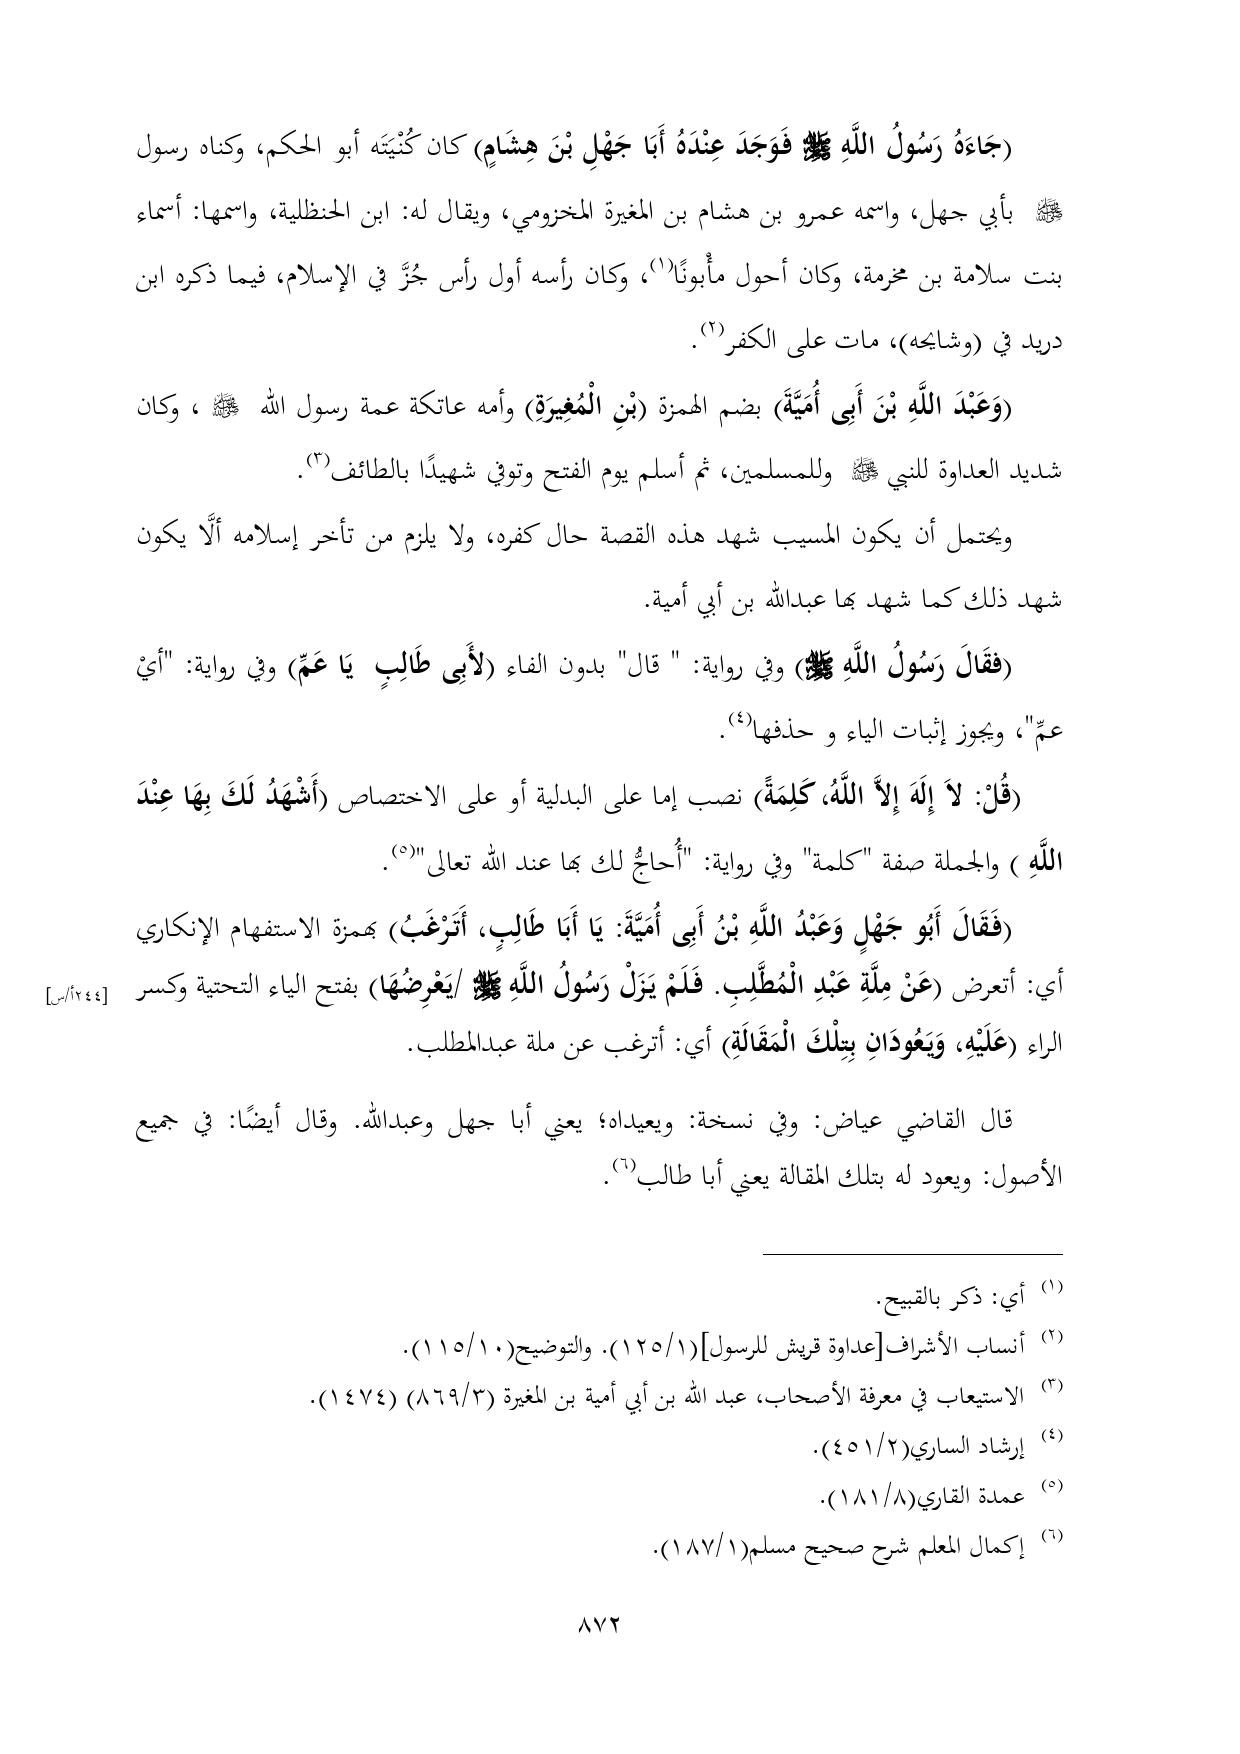 (جَاءَهُ رَسُولُ اللَّهِ ﷺ فَوَجَدَ عِنْدَهُ أَبَا جَهْلِ بْنَ هِشَامٍ) كان كُنْيَتَه أبو الحكم، وكناه رسول
ﷺ بأبي جهل، واسمه عمرو بن هشام بن المغيرة المخزومي، ويقال له: ابن الحنظلية، واسمها: أسماء
بنت سلامة بن مخرمة، وكان أحول مأْبونًا(١)، وكان رأسه أول رأس جُزَّ في الإسلام، فيما ذكره ابن
دريد في (وشايحه)، مات على الكفر(٢).
(وَعَبْدَ اللَّهِ بْنَ أَبِى أُمَيَّةَ) بضم الهمزة (بْنِ الْمُغِيرَةِ) وأمه عاتكة عمة رسول الله ﷺ ، وكان
شديد العداوة للنبي ﷺ وللمسلمين، ثم أسلم يوم الفتح وتوفي شهيدًا بالطائف(٣).
ويحتمل أن يكون المسيب شهد هذه القصة حال كفره، ولا يلزم من تأخر إسلامه ألَّا يكون
شهد ذلك كما شهد بها عبدالله بن أبي أمية.
(فقَالَ رَسُولُ اللَّهِ ﷺ) وفي رواية: " قال" بدون الفاء (لأَبِى طَالِبٍ يَا عَمِّ) وفي رواية: "أيْ
عمِّ"، ويجوز إثبات الياء و حذفها(٤).
(قُلْ: لاَ إِلَهَ إِلاَّ اللَّهُ، كَلِمَةً) نصب إما على البدلية أو على الاختصاص (أَشْهَدُ لَكَ بِهَا عِنْدَ
اللَّهِ ) والجملة صفة "كلمة" وفي رواية: "أُحاجُّ لك بها عند الله تعالى"(٥).
(فَقَالَ أَبُو جَهْلٍ وَعَبْدُ اللَّهِ بْنُ أَبِى أُمَيَّةَ: يَا أَبَا طَالِبٍ، أَتَرْغَبُ) بهمزة الاستفهام الإنكاري
أي: أتعرض (عَنْ مِلَّةِ عَبْدِ الْمُطَّلِبِ. فَلَمْ يَزَلْ رَسُولُ اللَّهِ ﷺ /يَعْرِضُهَا) بفتح الياء التحتية وكسر [٢٤٤أ/س]
الراء (عَلَيْهِ، وَيَعُودَانِ بِتِلْكَ الْمَقَالَةِ) أي: أترغب عن ملة عبدالمطلب.
قال القاضي عياض: وفي نسخة: ويعيداه؛ يعني أبا جهل وعبدالله. وقال أيضًا: في جميع
الأصول: ويعود له بتلك المقالة يعني أبا طالب(٦).
(١) أي: ذكر بالقبيح.
(٢) أنساب الأشراف[عداوة قريش للرسول](١٢٥/١). والتوضيح(١١٥/١٠).
(٣) الاستيعاب في معرفة الأصحاب، عبد الله بن أبي أمية بن المغيرة (٨٦٩/٣) (١٤٧٤).
(٤) إرشاد الساري(٤٥١/٢).
(٥) عمدة القاري(١٨١/٨).
(٦) إكمال المعلم شرح صحيح مسلم(١٨٧/١).
٨٧٢